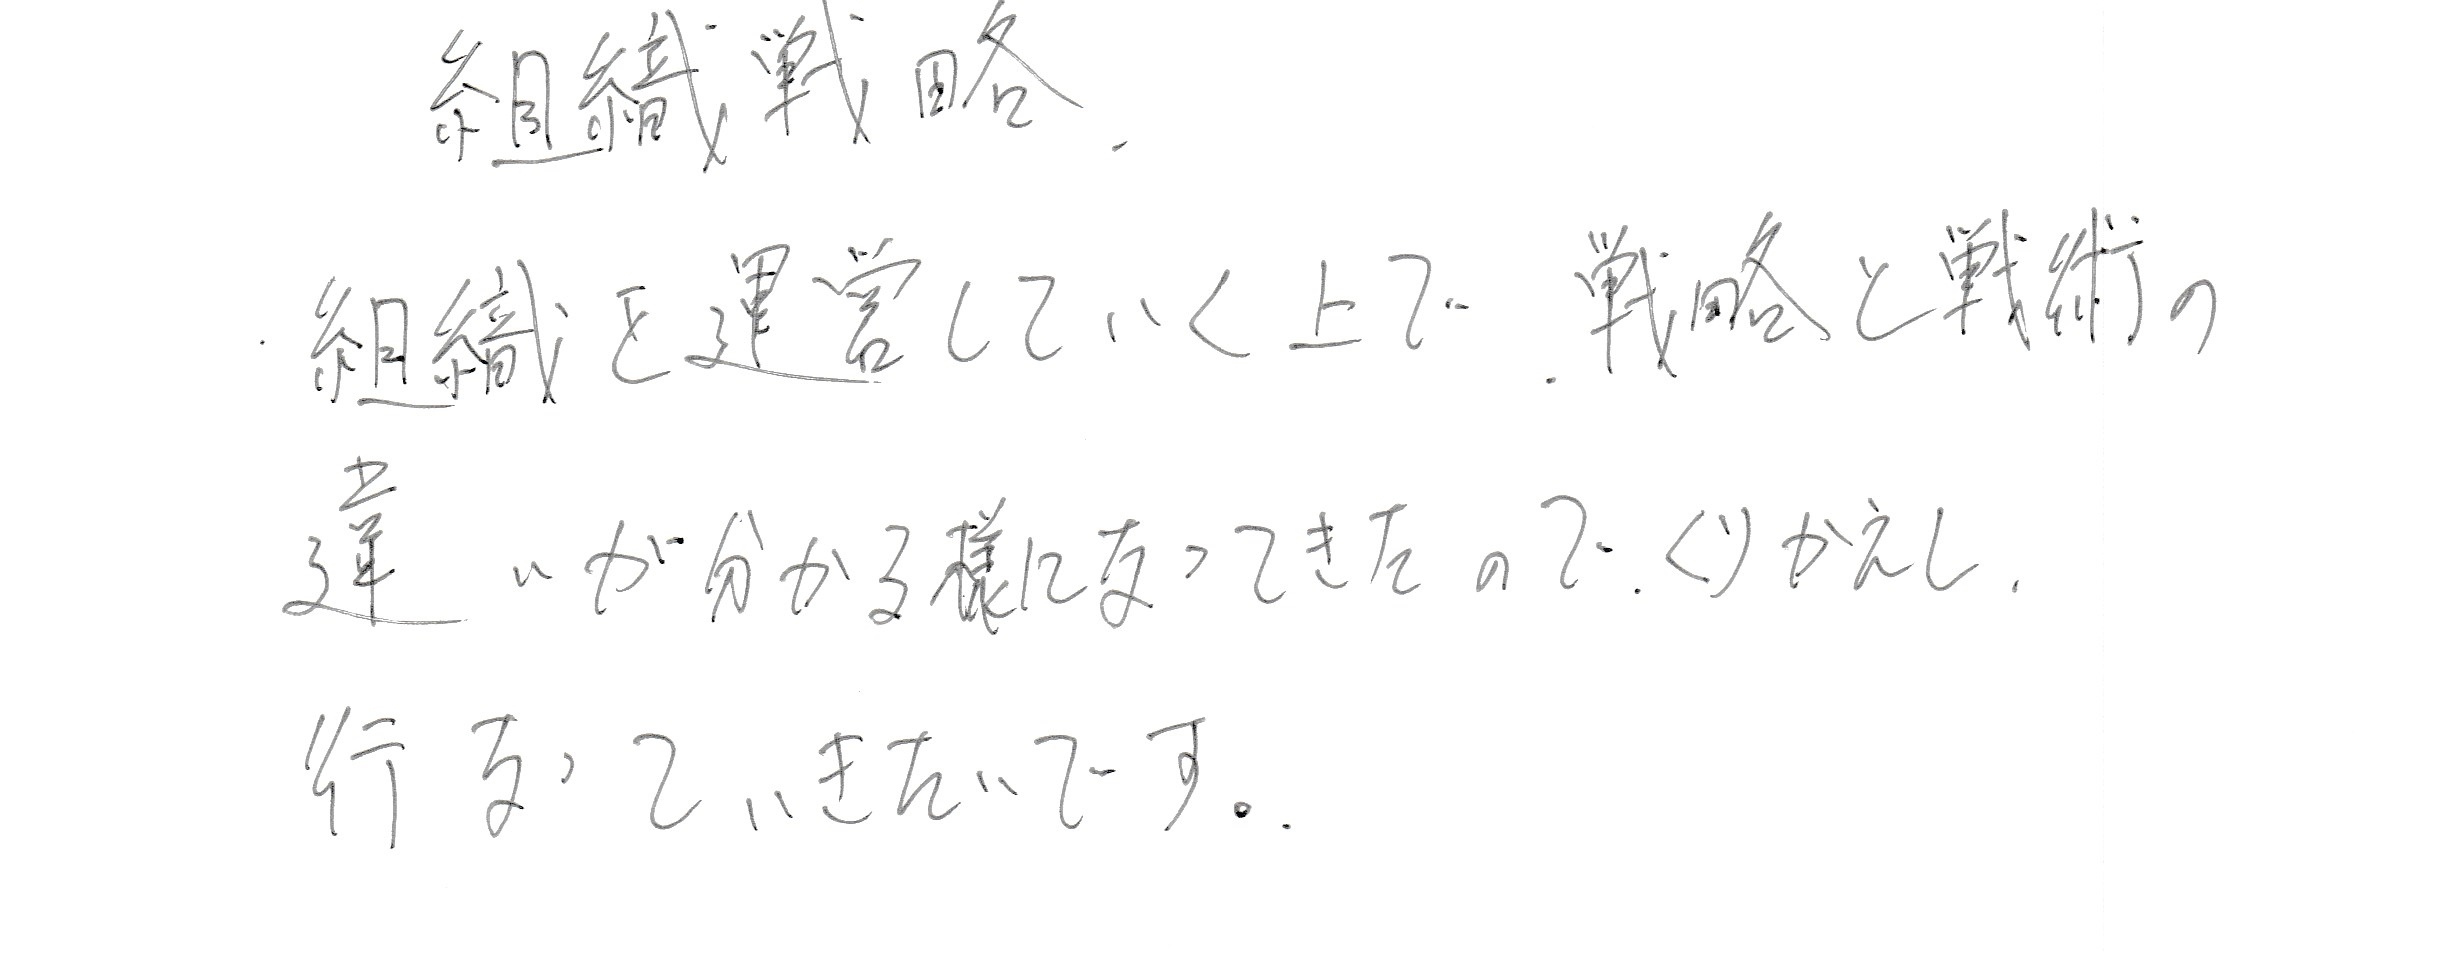 組織戦略.
組織を運営していく上で.戦略と戦術の
違いが分かる様になってきたので.くりかえし.
行なっていきたいです。.